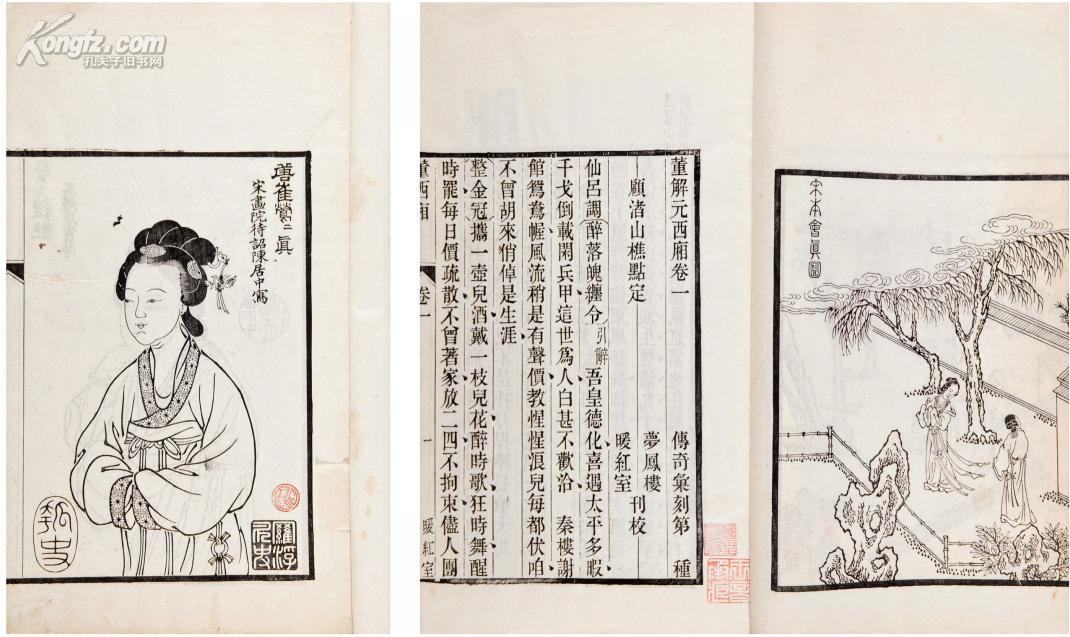 Kongfz.com
孔夫子旧书网
唐崔鶯〻眞
宋畫院待詔陳居中寫
董解元西廂卷一 傳奇彙刻第 種
顧渚山樵點定 夢鳳樓 暖紅室 刊校
仙呂調 醉落魄纏令 引辭 吾皇德化喜遇太平多暇
干戈倒載閑兵甲這世爲人白甚不歡洽 秦樓謝
館鴛鴦幄風流稍是有聲價教惺惺浪兒每都伏咱
不曾胡來俏倬是生涯
整金冠攜一壺兒酒戴一枝兒花醉時歌狂時舞醒
時罷每日價疏散不曾著家放二四不拘束儘人團
董西廂 卷一 一 暖紅室
宋本會眞圖